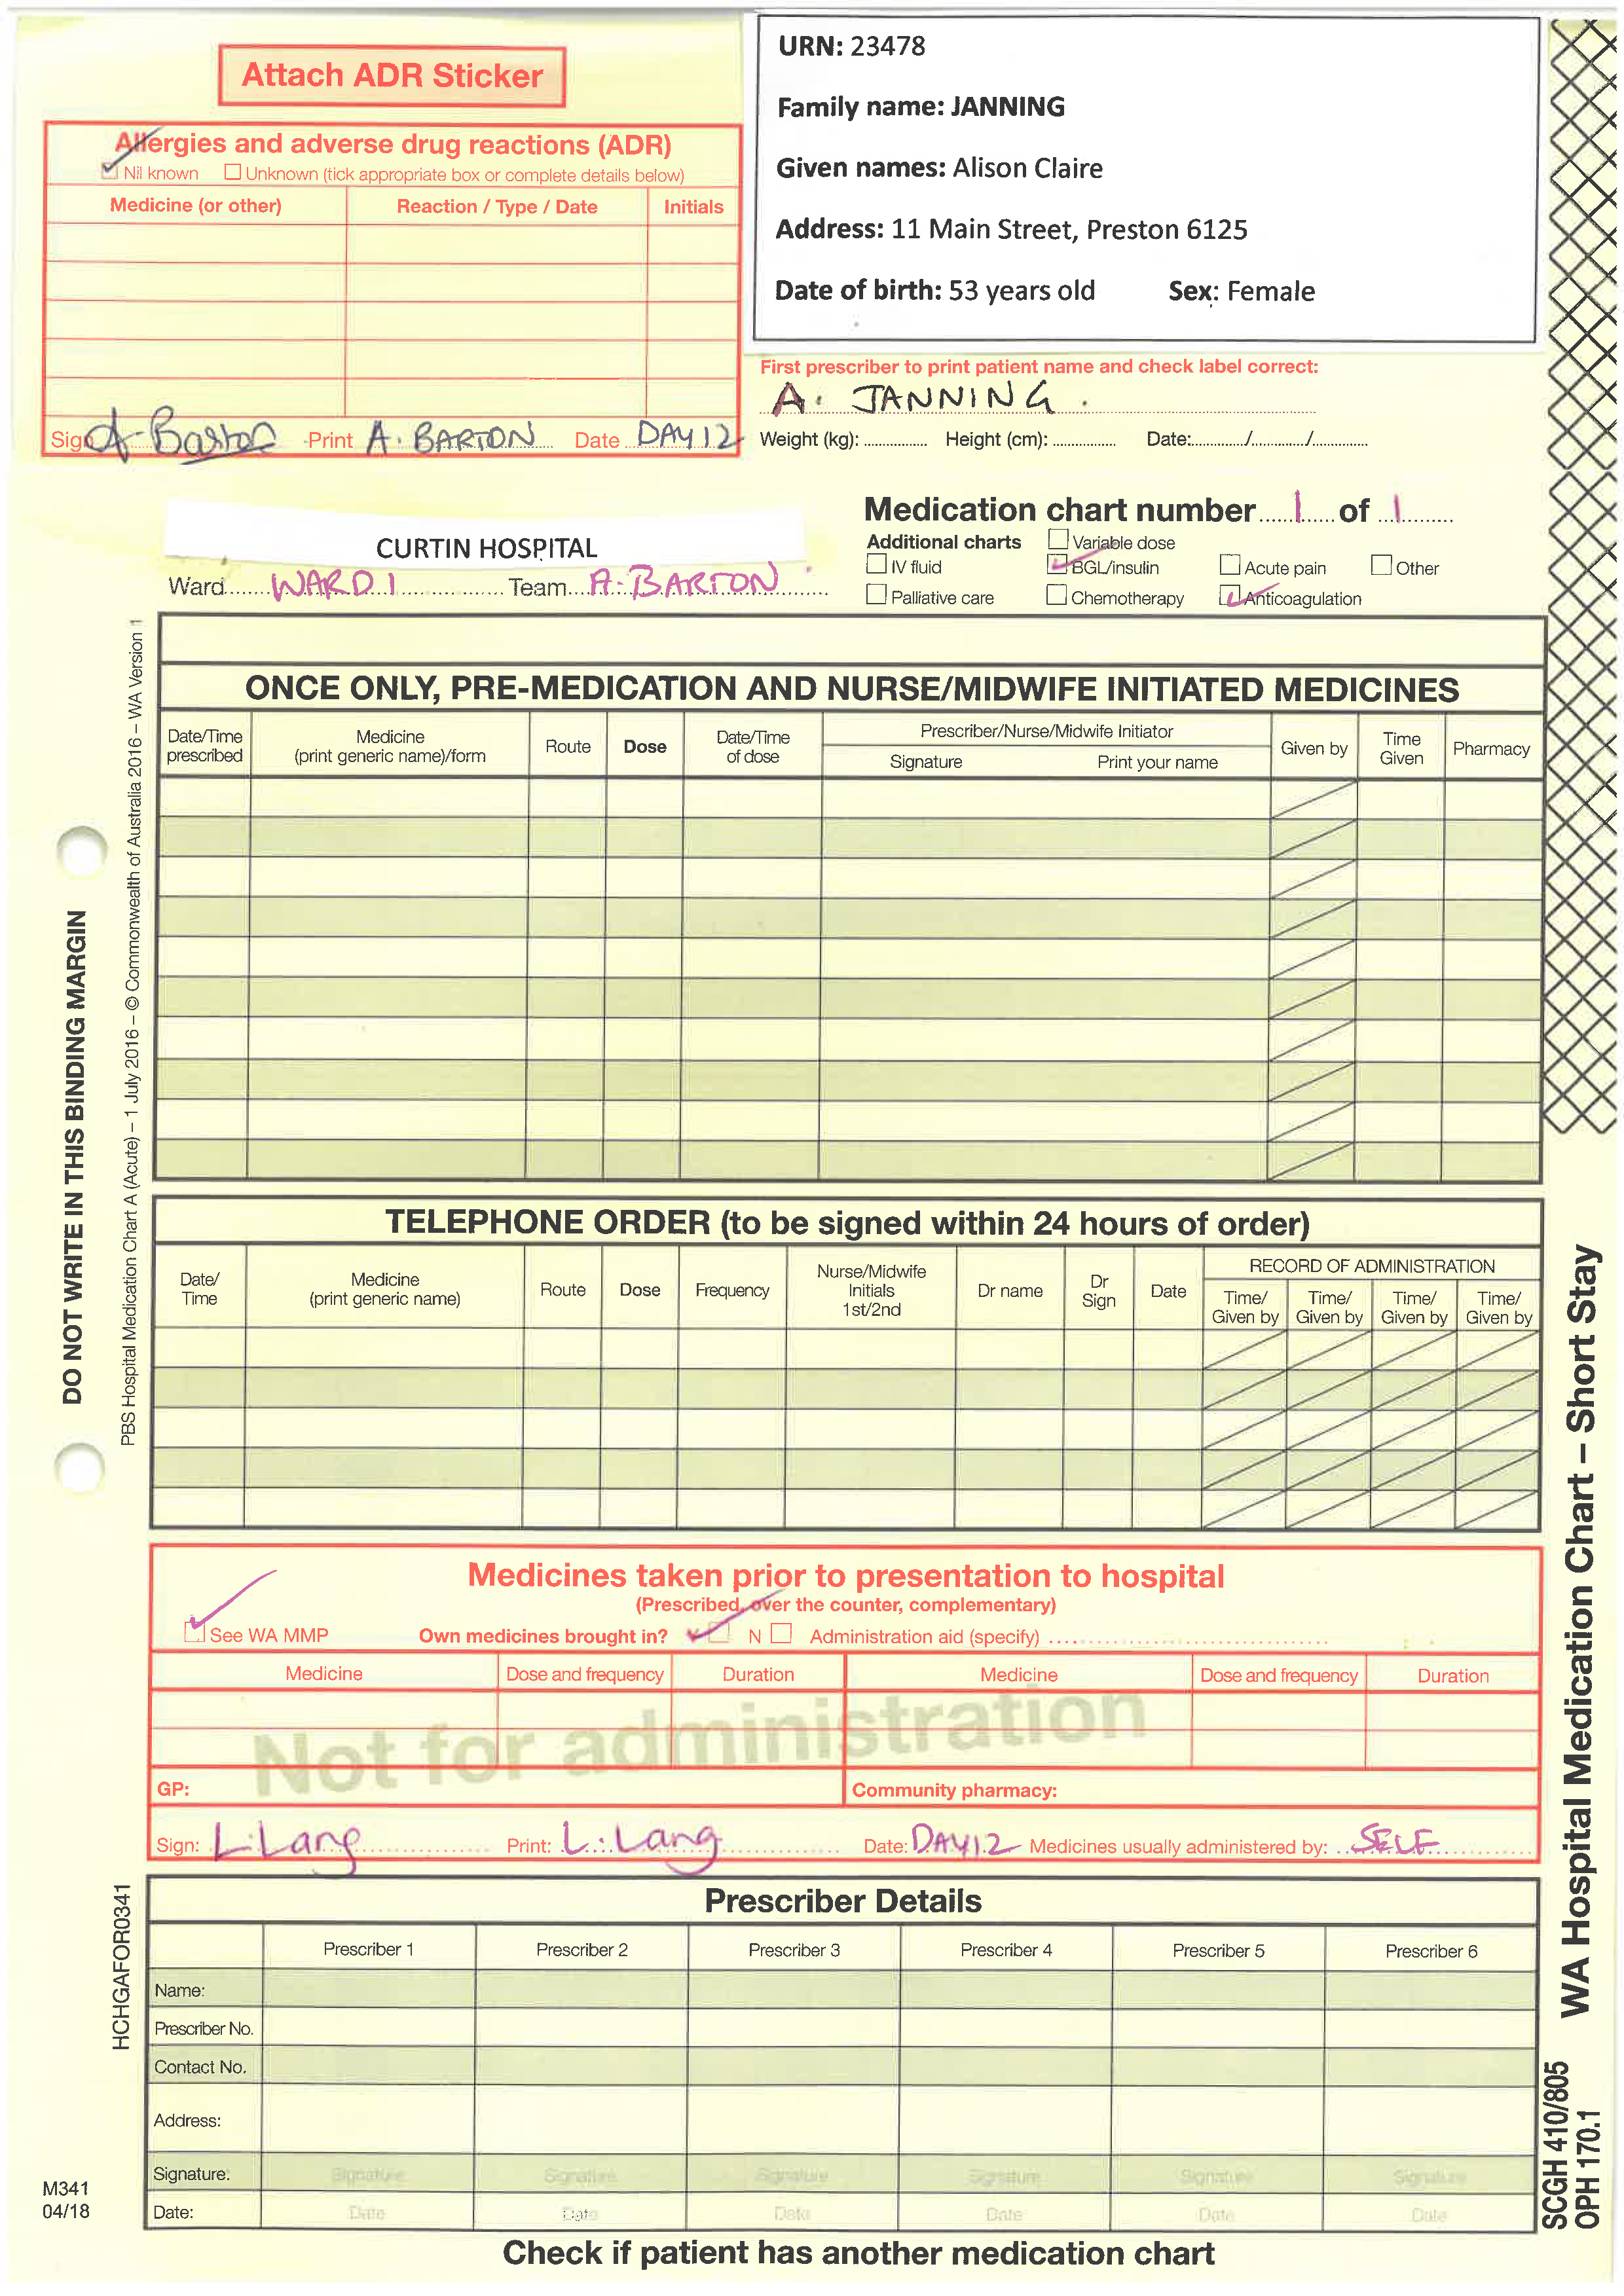 Attach ADR Sticker
Allergies and adverse drug reactions (ADR)
Nil known Unknown (tick appropriate box or complete details below)
Medicine (or other) Reaction / Type / Date Initials
Sign A Barton Print A. BARTON Date DAY 12
URN: 23478
Family name: JANNING
Given names: Alison Claire
Address: 11 Main Street, Preston 6125
Date of birth: 53 years old Sex: Female
First prescriber to print patient name and check label correct:
A. JANNING.
Weight (kg): Height (cm): Date: / /
CURTIN HOSPITAL
Ward WARD 1 Team A. BARTON
Medication chart number 1 of 1
Additional charts Variable dose
IV fluid BGL/insulin Acute pain Other
Palliative care Chemotherapy Anticoagulation
ONCE ONLY, PRE-MEDICATION AND NURSE/MIDWIFE INITIATED MEDICINES
Date/Time prescribed Medicine (print generic name)/form Route Dose Date/Time of dose Prescriber/Nurse/Midwife Initiator Given by Time Given Pharmacy
Signature Print your name
TELEPHONE ORDER (to be signed within 24 hours of order)
Date/ Time Medicine (print generic name) Route Dose Frequency Nurse/Midwife Initials 1st/2nd Dr name Dr Sign Date RECORD OF ADMINISTRATION
Time/ Given by Time/ Given by Time/ Given by Time/ Given by
Medicines taken prior to presentation to hospital
(Prescribed, over the counter, complementary)
See WA MMP Own medicines brought in? N Administration aid (specify)
Medicine Dose and frequency Duration Medicine Dose and frequency Duration
Not for administration
GP: Community pharmacy:
Sign: L. Lang Print: L. Lang Date: DAY 12 Medicines usually administered by: SELF
Prescriber Details
Prescriber 1 Prescriber 2 Prescriber 3 Prescriber 4 Prescriber 5 Prescriber 6
Name:
Prescriber No.
Contact No.
Address:
Signature: Signature Signature Signature Signature Signature Signature
Date: Date Date Date Date Date Date
Check if patient has another medication chart
DO NOT WRITE IN THIS BINDING MARGIN
PBS Hospital Medication Chart A (Acute) – 1 July 2016 – © Commonwealth of Australia 2016 – WA Version 1
HCHGAFOR0341
M341
04/18
WA Hospital Medication Chart – Short Stay
SCGH 410/805
OPH 170.1